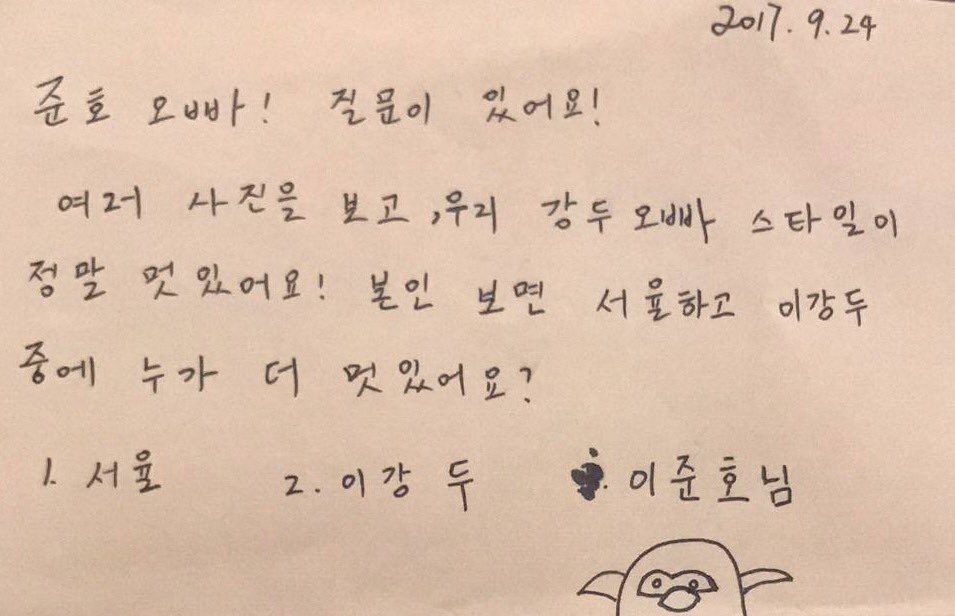 2017. 9. 24
준호 오빠! 질문이 있어요!
여러 사진을 보고, 우리 강두오빠 스타일이
정말 멋있어요! 본인 보면 서율하고 이강두
중에 누가 더 멋있어요?
1. 서율 2. 이강두 이준호님